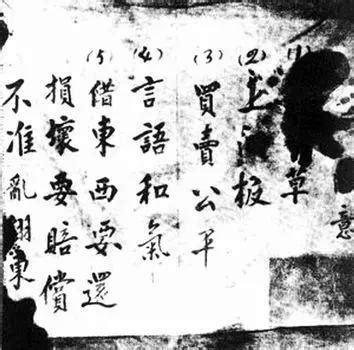 意
(1)草
(2)上板
(3)買賣公平
(4)言語和氣
(5)借東西要還
損壞要賠償
不准亂翻東